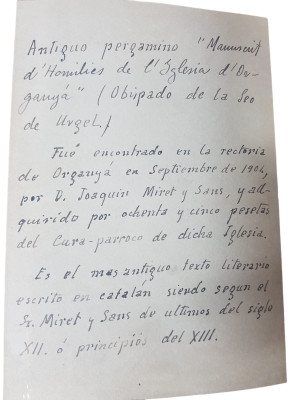 Antiguo pergamino "Manuscrit
d'Homilies de l'Iglesia d'Or-
ganyá" (Obispado de la Seo
de Urgel,)
Fué encontrado en la rectoria
de Organya en Septiembre de 1904,
por D. Joaquin Miret y Sans, y ad-
quirido por ochenta y cinco pesetas
del Cura-parroco de dicha Iglesia.
Es el mas antiguo texto literario
escrito en catalán siendo segun el
Sr. Miret y Sans de ultimos del siglo
XII. ó principiós del XIII.